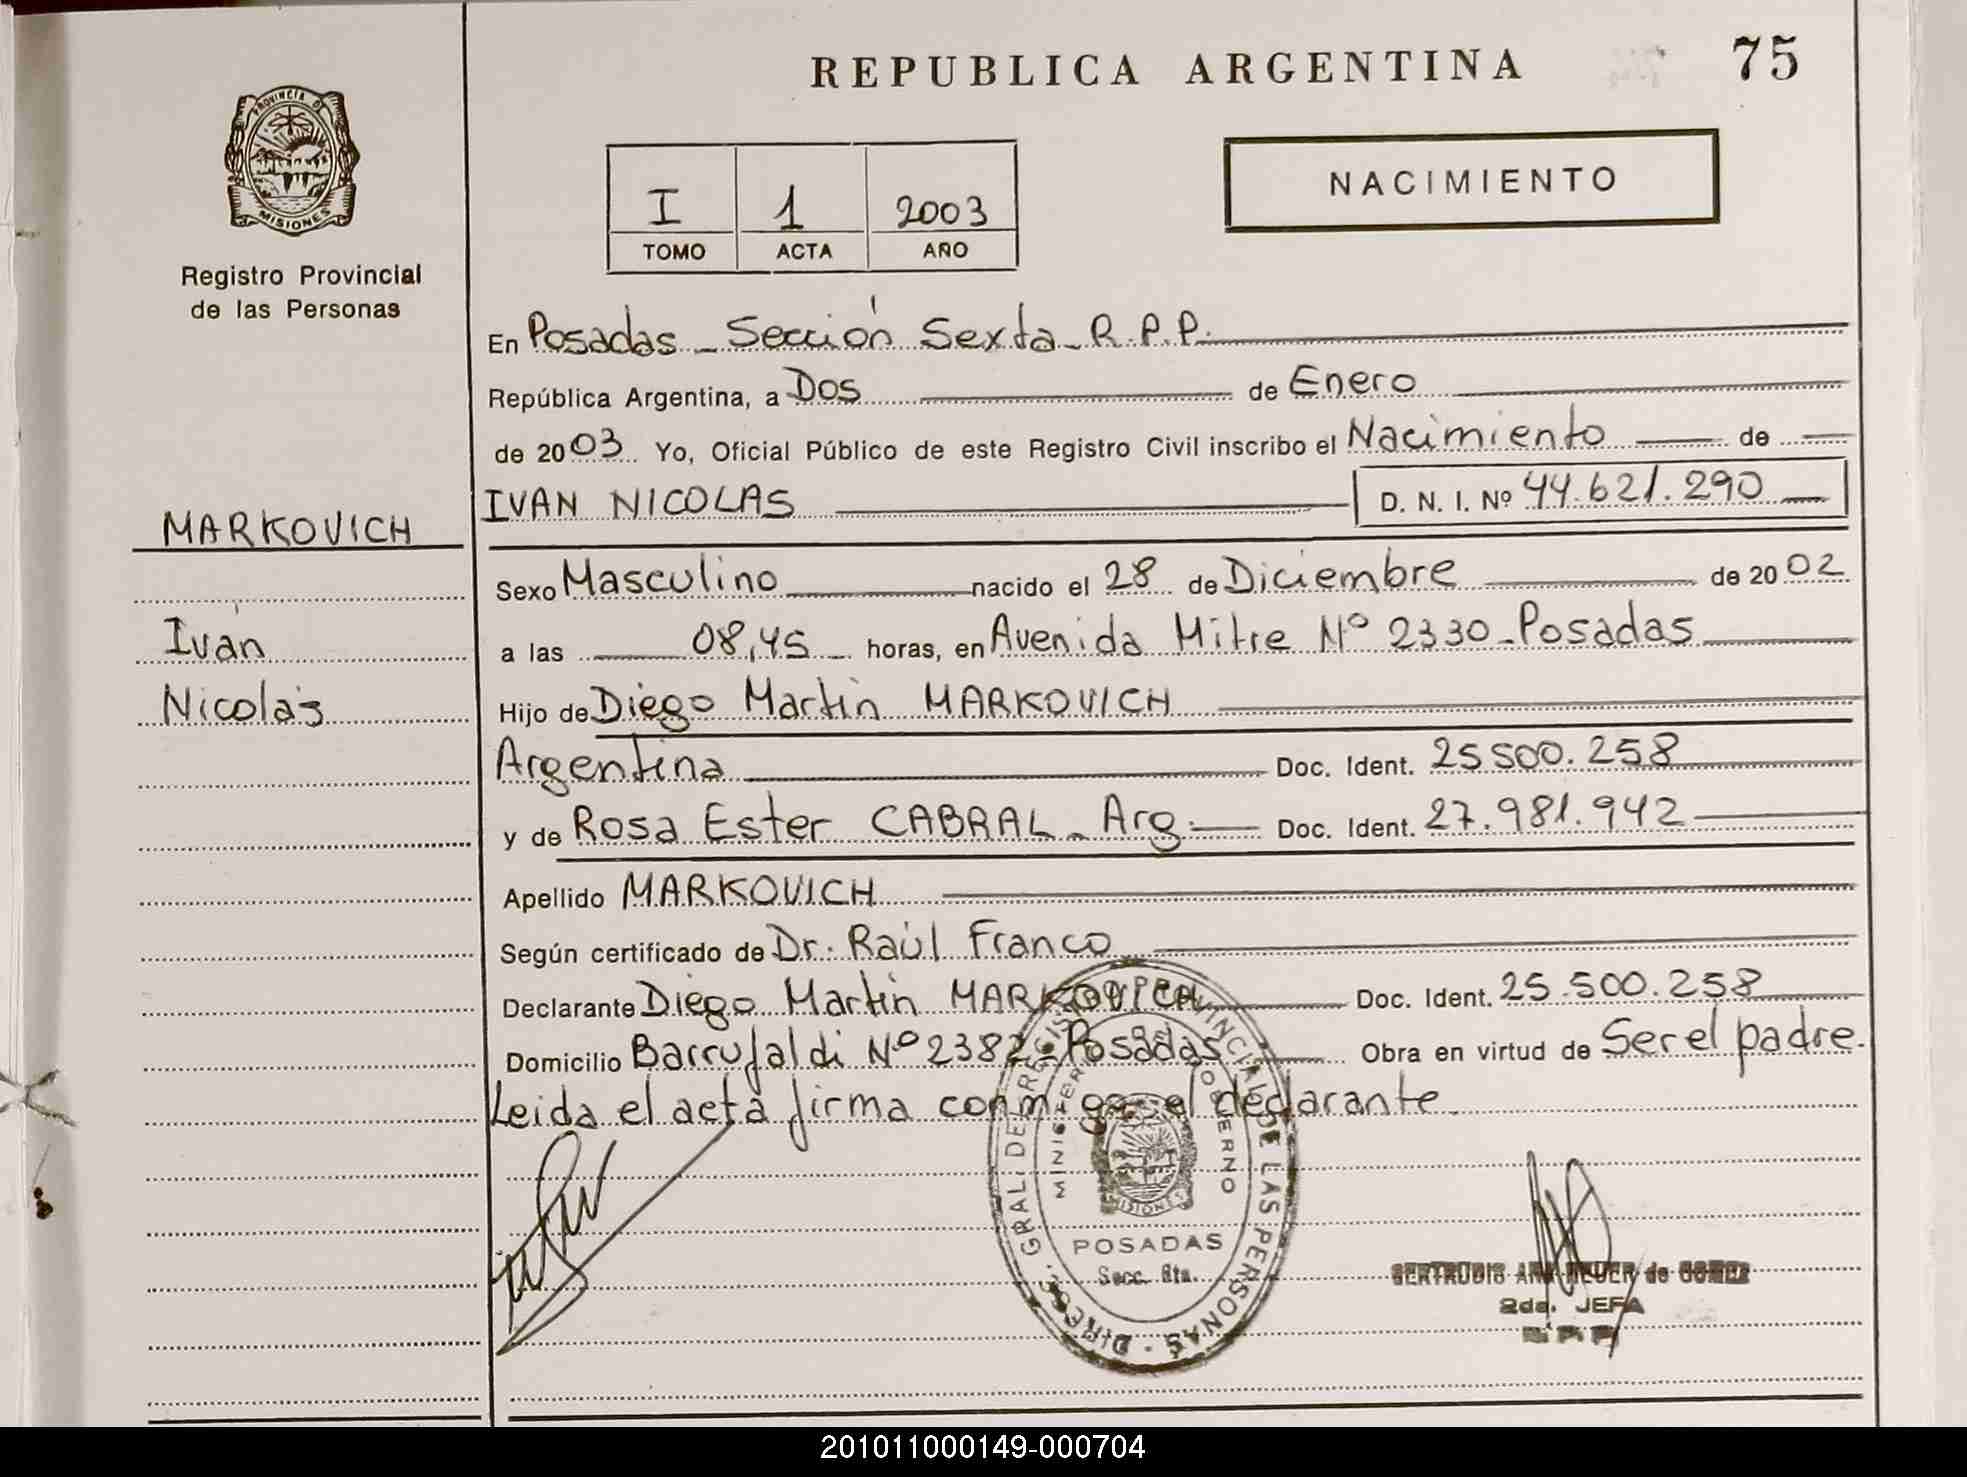 REPUBLICA ARGENTINA
75
PROVINCIA DE
MISIONES
Registro Provincial
de las Personas
I 1 2003
TOMO ACTA AÑO
NACIMIENTO
En Posadas - Sección Sexta - R.P.P.
República Argentina, a Dos de Enero
de 2003 Yo, Oficial Público de este Registro Civil inscribo el Nacimiento de
IVAN NICOLAS D. N. I. Nº 44.621.290
MARKOVICH
Iván
Nicolás
Sexo Masculino nacido el 28 de Diciembre de 2002
a las 08,45 horas, en Avenida Mitre Nº 2330 - Posadas
Hijo de Diego Martín MARKOVICH
Argentina Doc. Ident. 25500.258
y de Rosa Ester CABRAL - Arg. Doc. Ident. 27.981.942
Apellido MARKOVICH
Según certificado de Dr. Raúl Franco
Declarante Diego Martín MARKOVICH Doc. Ident. 25.500.258
Domicilio Barrufaldi Nº 2382 - Posadas Obra en virtud de Ser el padre.
Leida el acta firma conmigo el declarante.
DIREC. GRAL. DE REGIST. PROVINCIAL DE LAS PERSONAS
MINISTERIO GOBIERNO
MISIONES
POSADAS
Secc. 6ta.
GERTRUDIS ANA de GOMEZ
2da. JEFA
201011000149-000704